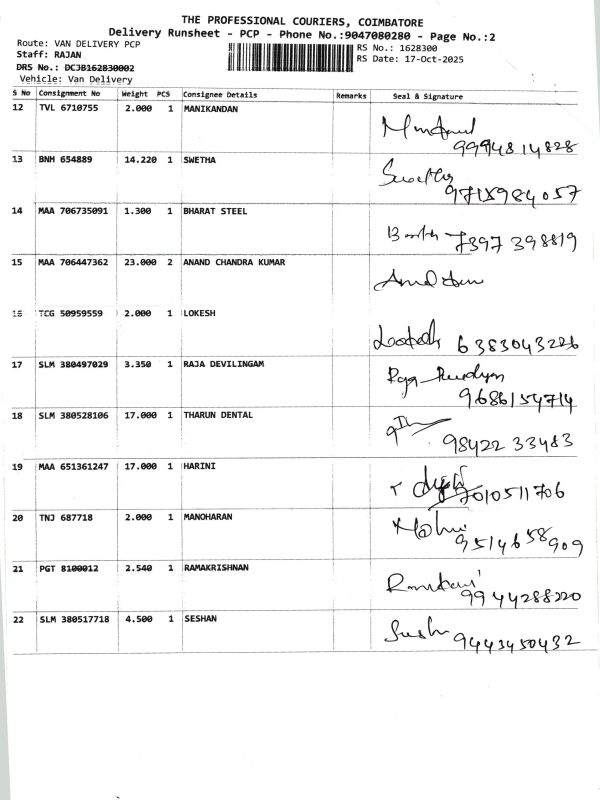 THE PROFESSIONAL COURIERS, COIMBATORE
Delivery Runsheet - PCP - Phone No.:9047080280 - Page No.:2
Route: VAN DELIVERY PCP
RS No.: 1628300
Staff: RAJAN
RS Date: 17-Oct-2025
DRS No.: DCJB162830002
Vehicle: Van Delivery
S No Consignment No Weight PCS Consignee Details Remarks Seal & Signature
12 TVL 6710755 2.000 1 MANIKANDAN
9994814828
13 BNH 654889 14.220 1 SWETHA
Swetha
9715984057
14 MAA 706735091 1.300 1 BHARAT STEEL
7397 398819
15 MAA 706447362 23.000 2 ANAND CHANDRA KUMAR
16 TCG 50959559 2.000 1 LOKESH
6383043226
17 SLM 380497029 3.350 1 RAJA DEVILINGAM
Raja
9686154714
18 SLM 380528106 17.000 1 THARUN DENTAL
98422 33483
19 MAA 651361247 17.000 1 HARINI
7010511706
20 TNJ 687718 2.000 1 MANOHARAN
9514658909
21 PGT 8100012 2.540 1 RAMAKRISHNAN
9944288220
22 SLM 380517718 4.500 1 SESHAN
9443450432